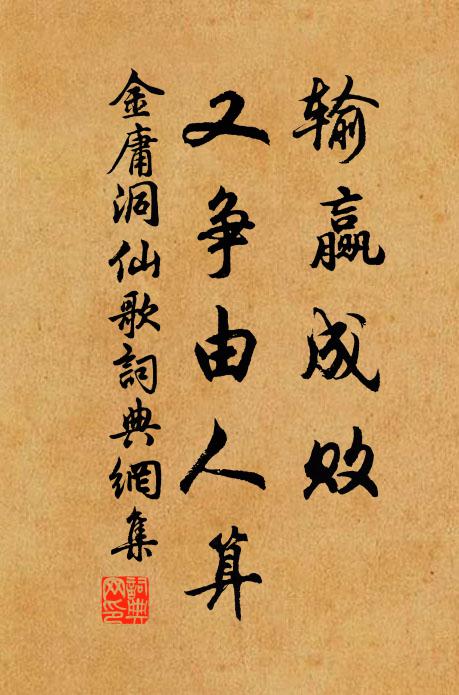 输赢成败
又争由人算
金庸洞仙歌詞典網集
詞典网印